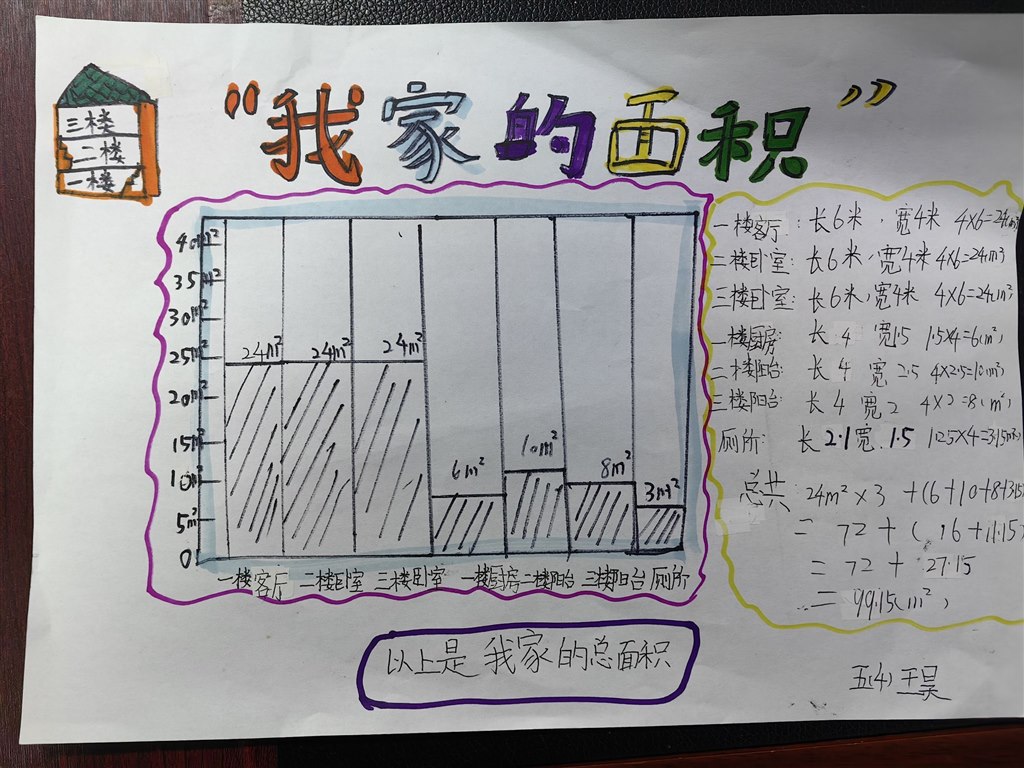 三楼
二楼
一楼
“我家的面积”
40m²
35m²
30m²
25m²
20m²
15m²
10m²
5m²
0
24m²
24m²
24m²
6m²
10m²
8m²
3m²
一楼客厅 二楼卧室 三楼卧室 一楼厨房 二楼阳台 三楼阳台 厕所
一楼客厅: 长6米, 宽4米 4×6=24(m²)
二楼卧室: 长6米, 宽4米 4×6=24(m³)
三楼卧室: 长6米, 宽4米 4×6=24(m²)
一楼厨房 长4 宽1.5 1.5×4=6(m²)
二楼阳台: 长4 宽2.5 4×2.5=10(m²)
三楼阳台: 长4 宽2 4×2=8(m²)
厕所: 长2.1宽1.5
总共: 24m²×3 +(6+10+8+3.15
= 72+(16+11.15)
= 72+27.15
= 99.15(m²)
以上是我家的总面积
五(4) 王昊